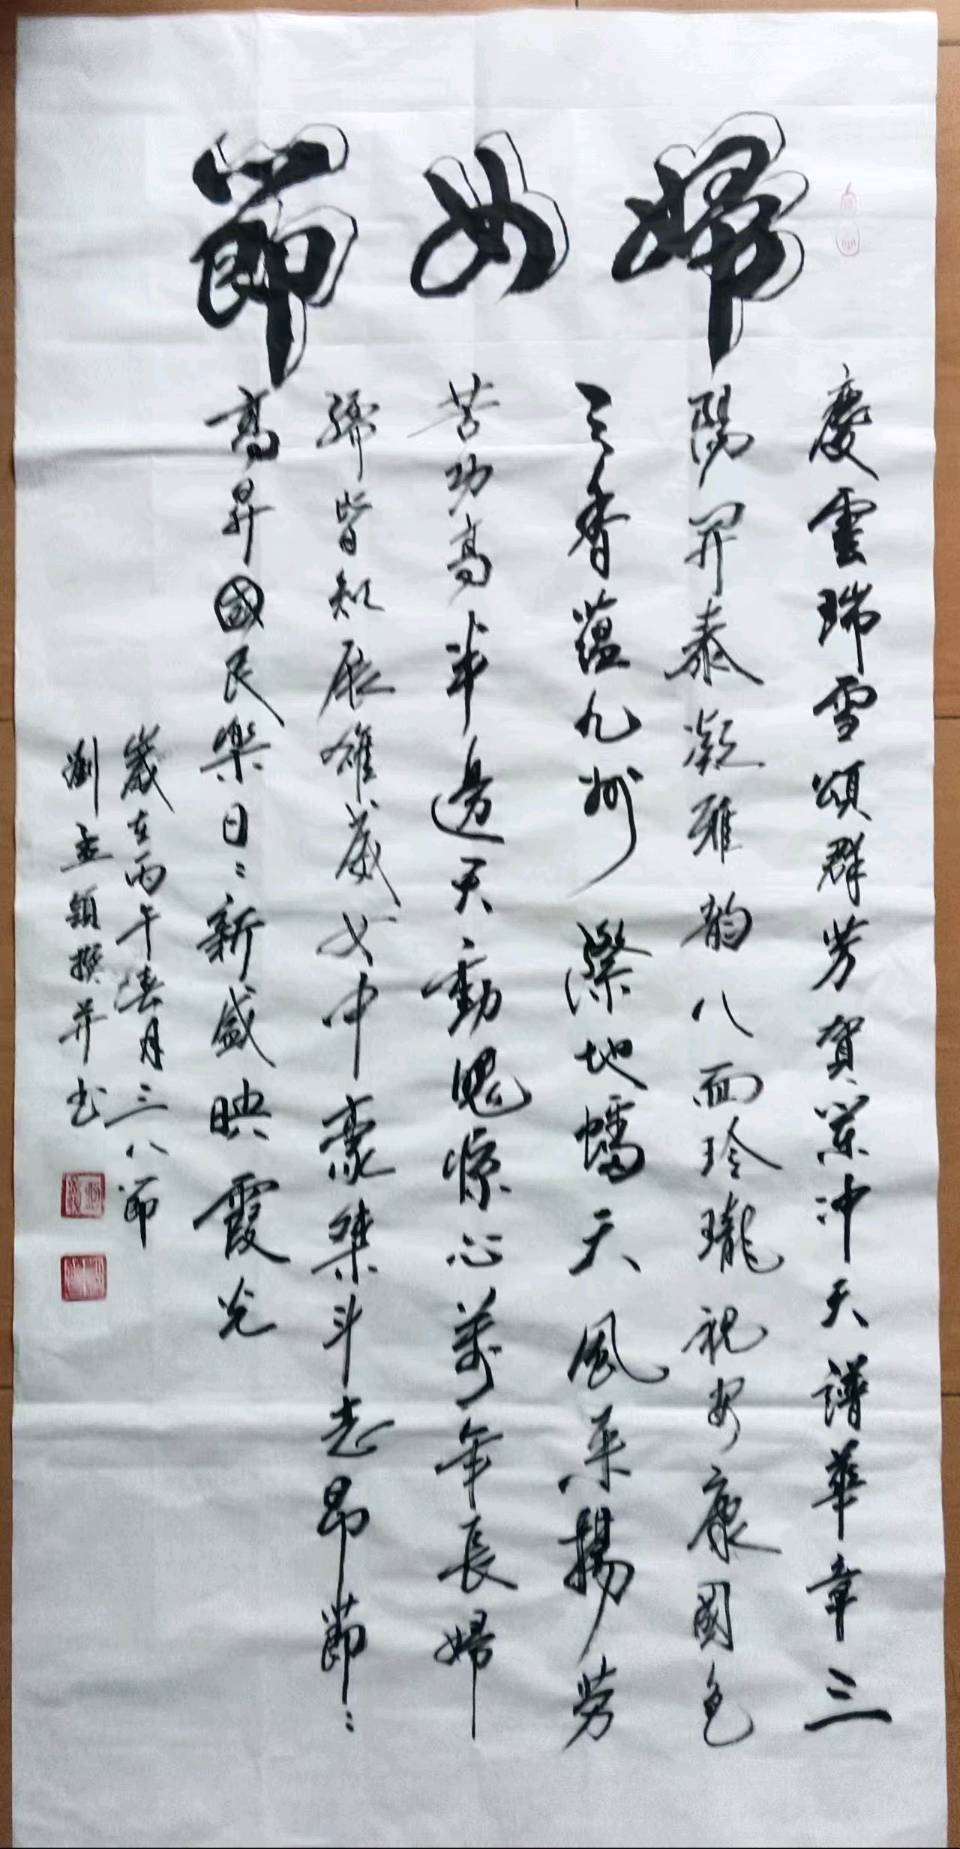 婦女節
慶雲瑞雪頌群芳賀業沖天譜華章三
陽開泰凝雅韵八面玲瓏祝安康國色
天香蘊九州際地蟠天風采揚勞
苦功高半邊天動魄驚心萬年長婦
孺皆知展雄葳女中豪傑斗志昂節〻
高昇國民樂日〻新盛映霞光
歲在丙午春月三八節
劉孟穎撰并书